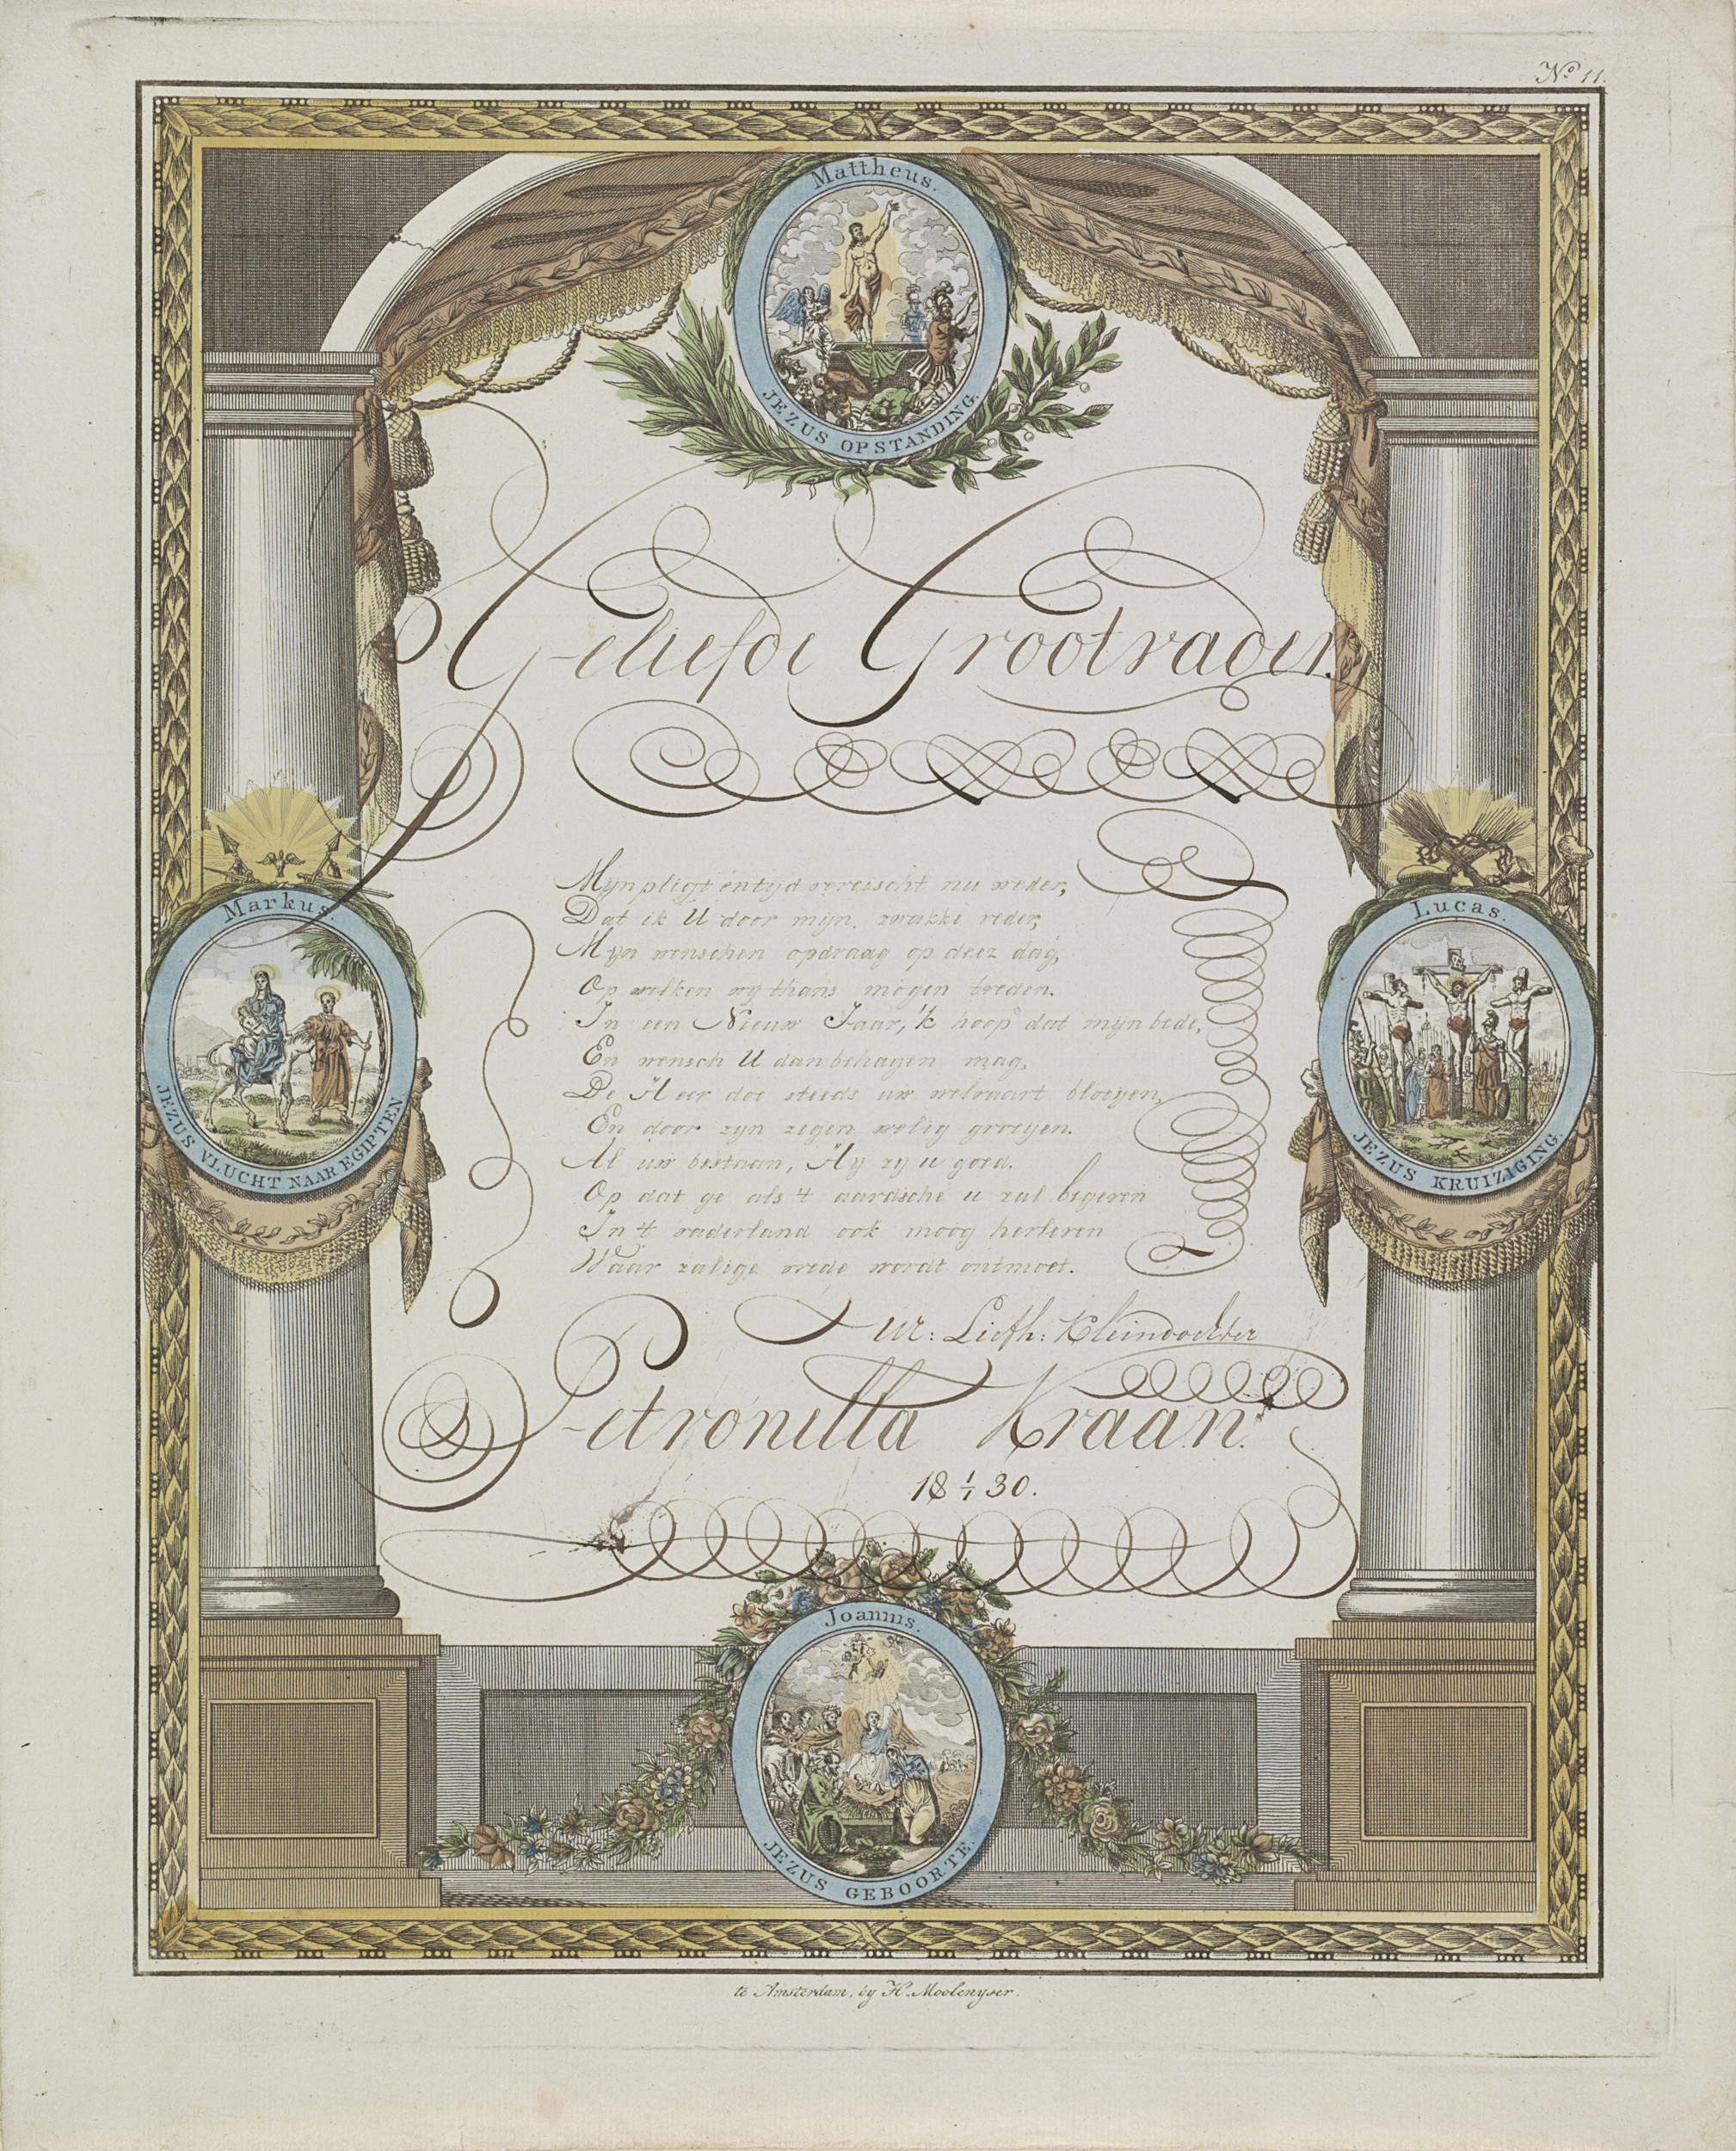 No. 11.
Mattheus.
JEZUS OPSTANDING.
Geliefde Grootvader.
Mijn pligt en tijd vereischt nu weder,
Dat ik U door mijn zwakke veder,
Mijn wenschen opdraag op deez dag,
Op welken wy thans mogen treden.
In een Nieuw Jaar, 'k hoop dat mijn bede,
En wensch U dan behagen mag,
De Heer doe steeds uw welvaart bloeyen,
En door zyn zegen welig groeyen.
Al uw bestaan, Hy zy u goed.
Op dat ge als 't aardsche u zal begeven
In 't vaderland ook moog herleven
Waar zalige vrede wordt ontmoet.
Uw: Liefh: Kleindochter
Petronella Kraan.
18 1/1 30.
Markus.
JEZUS VLUCHT NAAR EGIPTEN.
Lucas.
JEZUS KRUIZIGING.
Joannis.
JEZUS GEBOORTE.
te Amsterdam, by H. Moolenyser.